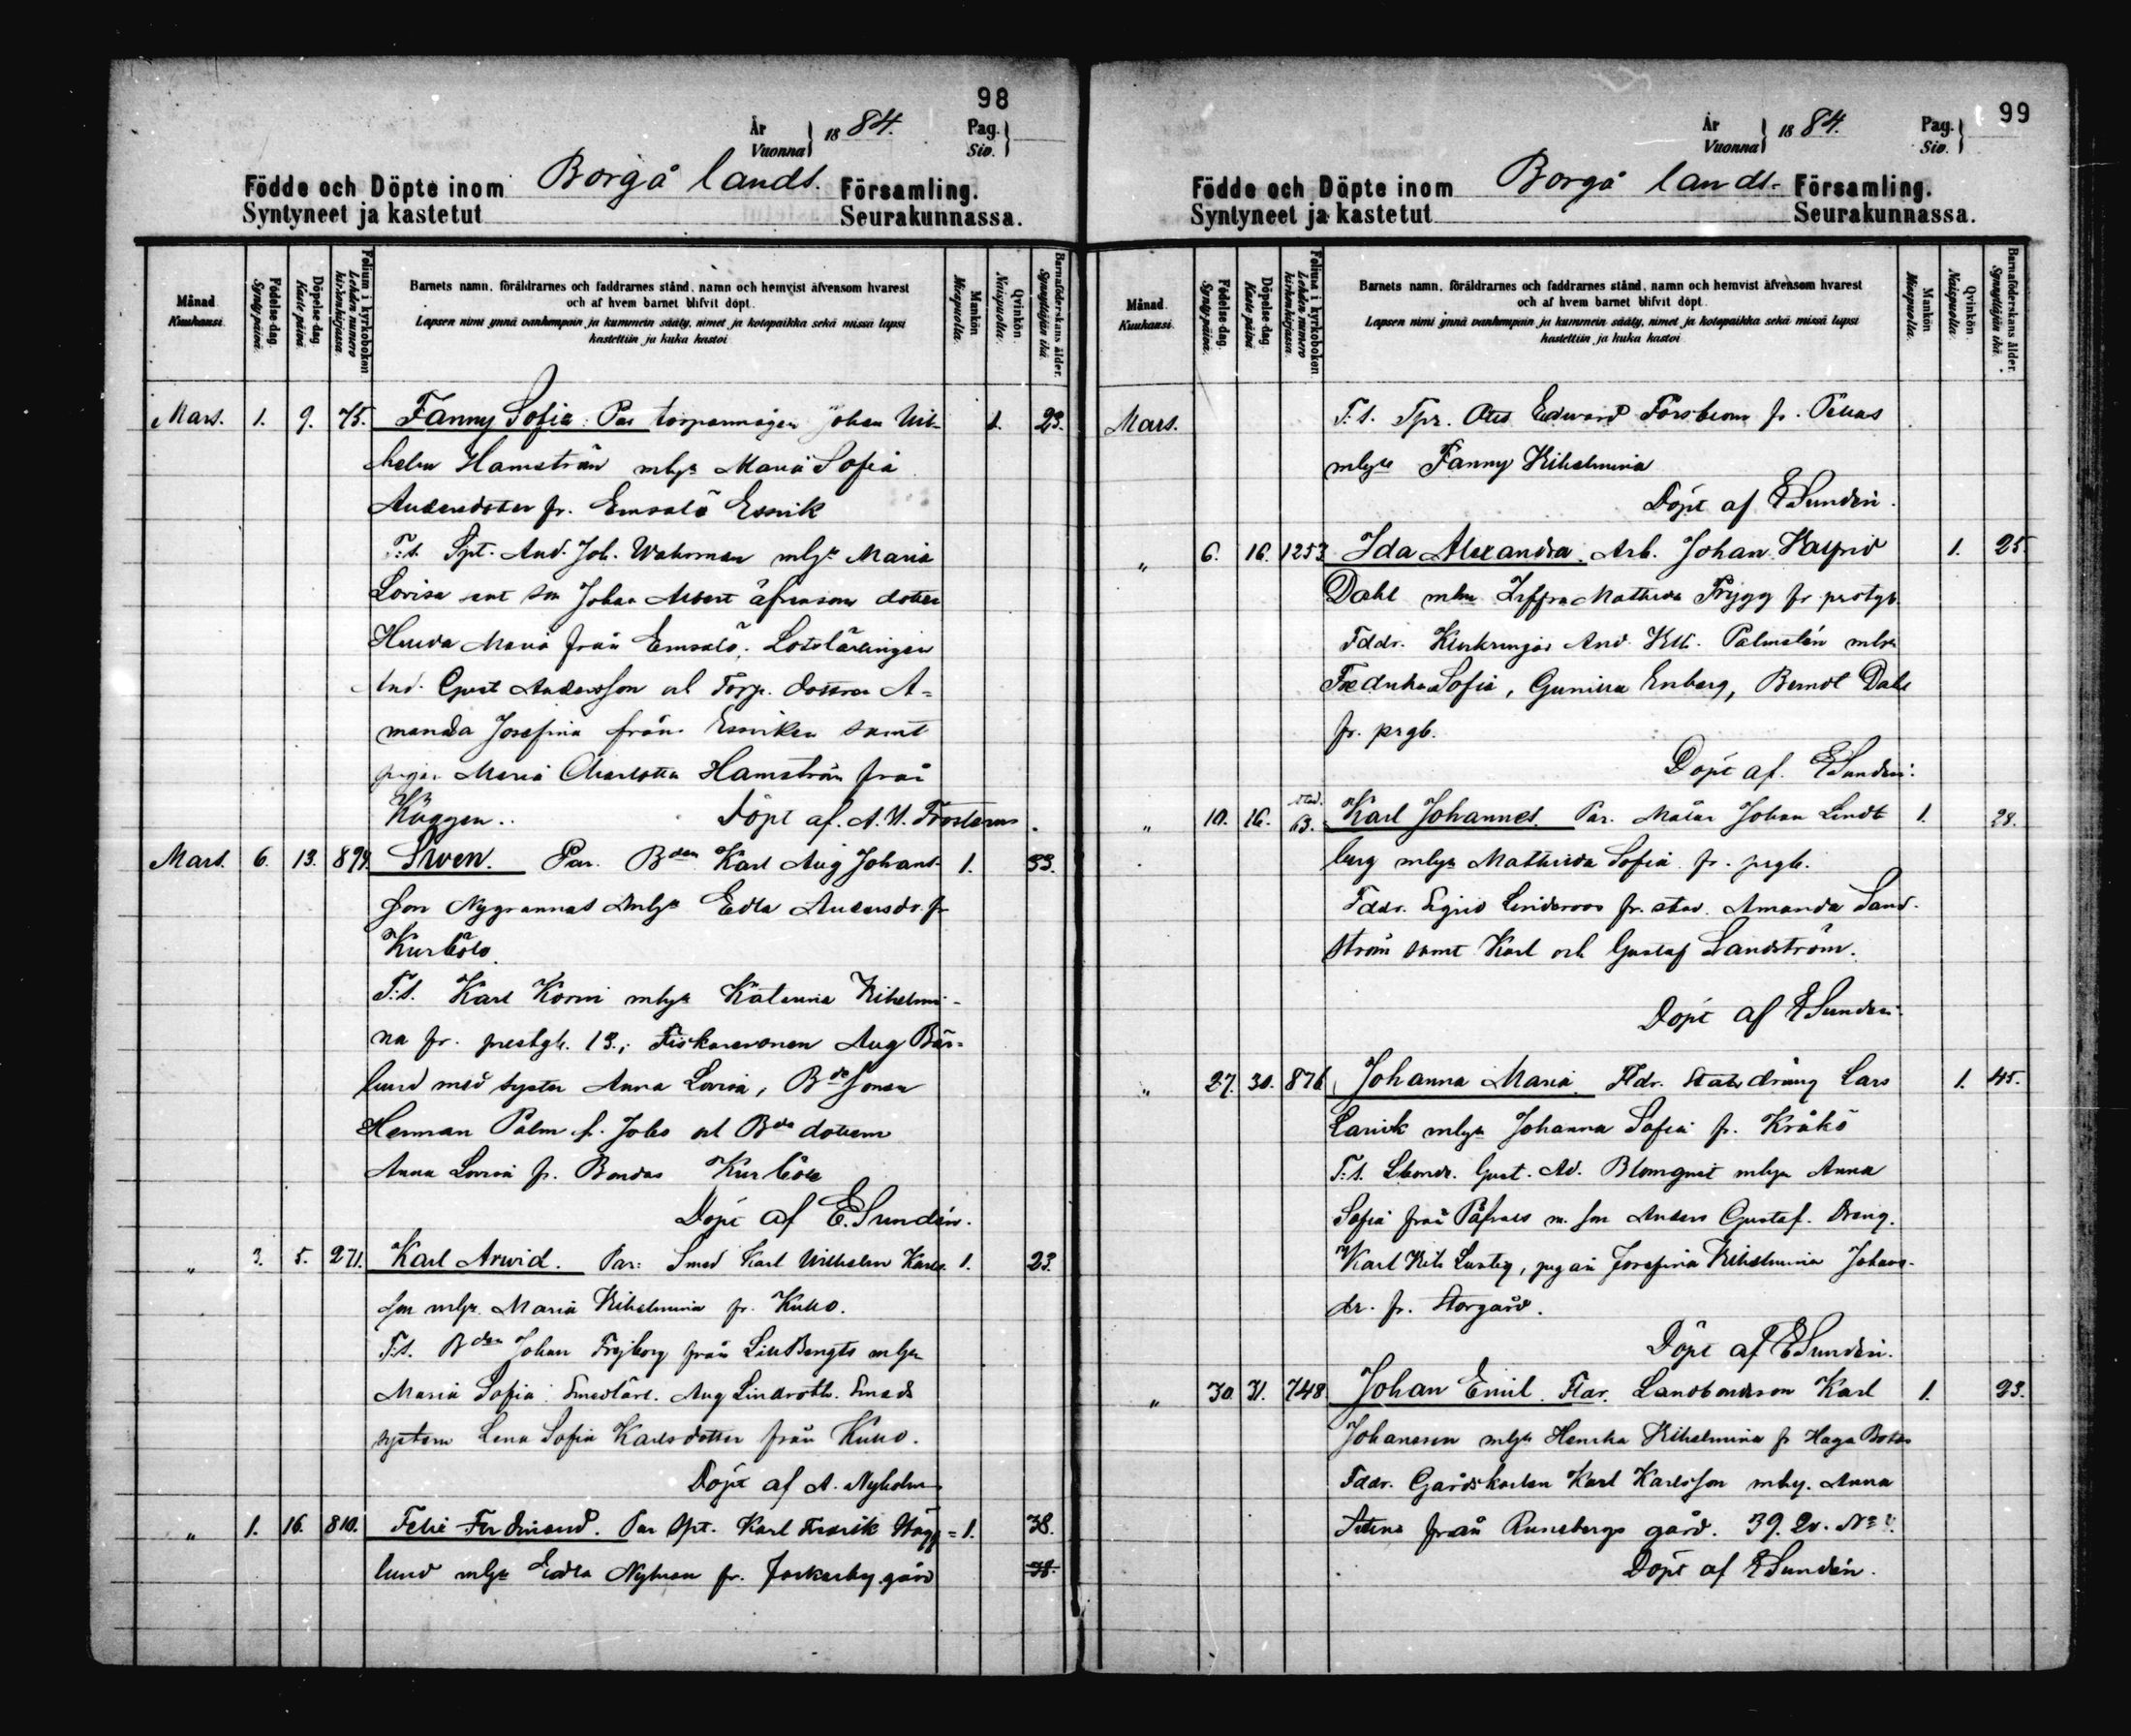 98
År
Vuonna
1884.
Pag.
Siv.
Födde och Döpte inom Borgå lands. Församling.
Syntyneet ja kastetut Seurakunnassa.
Månad Kuukausi.
Födelse-dag. Synty-päivä.
Döpelse-dag. Kaste-päivä.
Folium i kyrkoboken Lehden numero kirkonkirjassa.
Barnets namn, föräldrarnes och faddrarnes stånd, namn och hemvist äfvensom hvarest
och af hvem barnet blifvit döpt.
Lapsen nimi ynnä vanhempain ja kummein sääty, nimet ja kotopaikka sekä missä lapsi
kastettiin ja kuka kastoi
Mankön Miespuolia.
Qvinkön Naispuolia.
Barnaföderskans ålder. Synnyttäjän ikä.
Mars. 1. 9. 75. Fanny Sofia: Par torparmågen Johan Wil- 1. 23.
helm Hamström mlgn Maria Sofia
Andersdoter fr. Emsalö Essvik
T:s. Spt. And. Joh. Wahrman mlgn Maria
Lovisa samt son Johan Albert äfvensom dotter
Hulda Maria från Emsalö. Lotslärlingen
And. Gust Andersson och Torp. dottren A-
manda Josefina från Essviken samt
pigan Maria Charlotta Hamström från
Käggen. Döpt af. A. W. Frosterus
Mars. 6. 13. 899. Swen. Par. Bden Karl Aug Johans- 1. 33.
son Nygrannas mlgn Edla Andersdr. fr
Kurböle.
T:s. Karl Korni mlgn Katarina Wilhelmi-
na fr. prestgb. 13., Fiskarevonen Aug Bär-
lund med syster Anna Lovisa, Bdesonen
Herman Palm fr. Jobs och Bde dottern
Anna Lovisa fr. Bondas Kurböle
Döpt af E. Sundén.
" 3. 5. 271. Karl Arwid. Par: Smed Karl Wilhelm Karls- 1. 23.
son mlgn. Maria Wilhelmina fr. Kullo.
T:s. Bden Johan Frejborg från LillBengts mlgn
Maria Sofia Smedlärl. Aug Lindroth. Smeds
systern Lena Sofia Karlsdotter från Kullo.
Döpt af A. Nyholm
" 1. 16. 810. Felix Ferdinand. Par Spt. Karl Fredrik Hägg- 1. 38.
lund mlgn Edla Nyman fr. Jackarby gård 38.
99
År
Vuonna
1884.
Pag.
Siv.
Födde och Döpte inom Borgå lands- Församling.
Syntyneet ja kastetut Seurakunnassa.
Månad Kuukausi.
Födelse-dag. Synty-päivä.
Döpelse-dag. Kaste-päivä.
Folium i kyrkoboken Lehden numero kirkonkirjassa.
Barnets namn, föräldrarnes och faddrarnes stånd, namn och hemvist äfvensom hvarest
och af hvem barnet blifvit döpt.
Lapsen nimi ynnä vanhempain ja kummein sääty, nimet ja kotopaikka sekä missä lapsi
kastettiin ja kuka kastoi
Mankön Miespuolia.
Qvinkön Naispuolia.
Barnaföderskans ålder. Synnyttäjän ikä.
Mars. T:s. Tpr. Otto Edward Forsblom fr.
mlgn Fanny Wilhelmina
Döpt af ESundén.
" 6. 16. 1253 Ida Alexandra. Arb. Johan Walfrid 1. 25
Dahl mlgn Mathilda Trygg fr prstgb.
Faddr. And. Wilh. Palmstén mlgn
Fredrika Sofia, Gunilla Enberg, Berndt Dahl
fr. prgb.
Döpt af. ESundén.
" 10. 16. stad. 63. Karl Johannes. Par. Målar Johan Lindt 1. 28.
berg mlgn Mathilda Sofia fr. prgb.
Faddr. Sigrid Linderoos fr. stad. Amanda Sand-
ström samt Karl och Gustaf Sandström.
Döpt af ESundén.
" 27. 30. 876 Johanna Maria. Fldr. Statdräng Lars 1. 45.
Larvik mlgn Johanna Sofia fr. Kråkö
T:s. Lbondr. Gust. Ad. Blomqvist mlgn Anna
Sofia från Påfvals m. son Anders Gustaf. Dreng.
Karl Wilh Lustig, pigan Josefina Wilhelmina Johans-
dr. fr. Storgård.
Döpt af ESundén.
" 30 31. 748 Johan Emil. Fldr. Landbondeson Karl 1. 23.
Johansson mlgn Henrika Wilhelmina fr Haga Bobäs
Faddr. Gårdskarlen Karl Karlsson mlgn. Anna
Stina från Runebergs gård. 39. Qv. No
Döpt af ESundén.